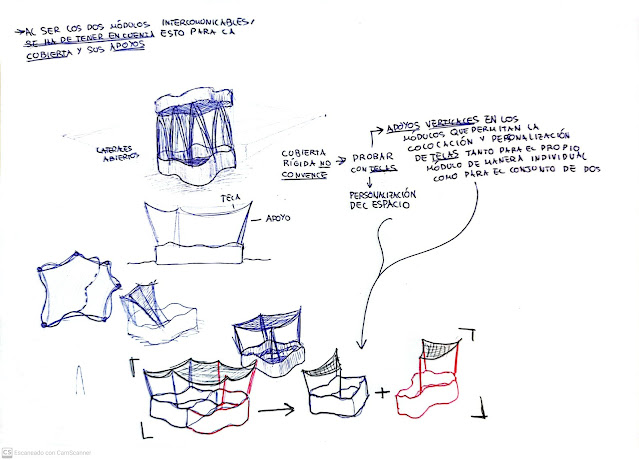 → AL SER LOS DOS MÓDULOS INTERCOMUNICABLES,
SE HA DE TENER EN CUENTA ESTO PARA LA
CUBIERTA Y SUS APOYOS
LATERALES
ABIERTOS
CUBIERTA
RÍGIDA NO
CONVENCE
→ PROBAR
CON TELAS
PERSONALIZACIÓN
DEL ESPACIO
→ APOYOS VERTICALES EN LOS
MÓDULOS QUE PERMITAN LA
COLOCACIÓN Y PERSONALIZACIÓN
DE TELAS TANTO PARA EL PROPIO
MÓDULO DE MANERA INDIVIDUAL
COMO PARA EL CONJUNTO DE DOS
TELA
APOYO
+
CS Escaneado con CamScanner